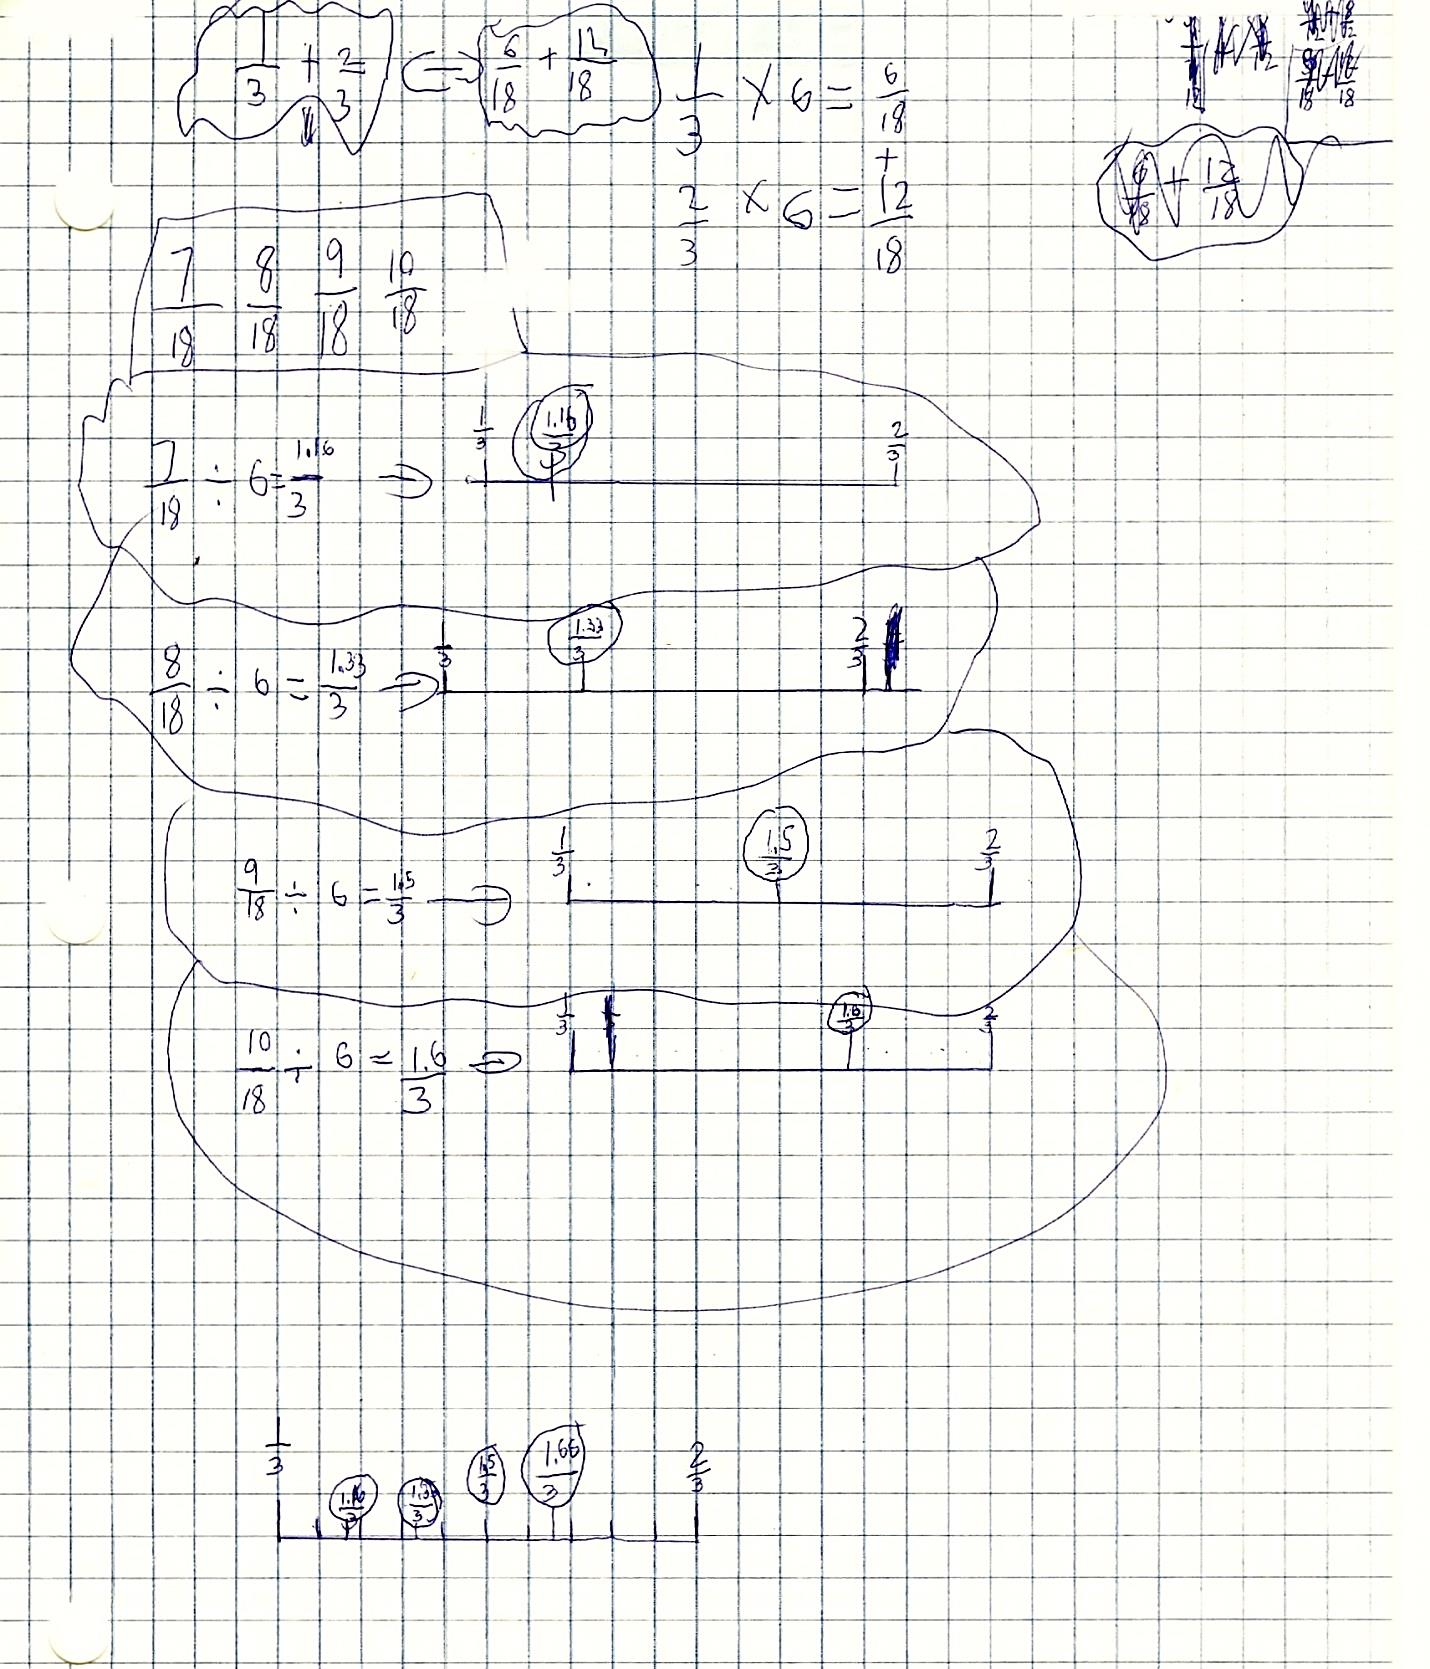 1/3 + 2/3 ⟺ 6/18 + 12/18
1/3 × 6 = 6/18
+
2/3 × 6 = 12/18
6/18 + 12/18
7/18 8/18 9/18 10/18
7/18 ÷ 6 = 1.16/3 → 1/3 1.16/3 2/3
8/18 ÷ 6 = 1.33/3 → 1/3 1.33/3 2/3
9/18 ÷ 6 = 1.5/3 → 1/3 1.5/3 2/3
10/18 ÷ 6 = 1.6/3 → 1/3 1.6/3 2/3
1/3 1.16/3 1.33/3 1.5/3 1.66/3 2/3